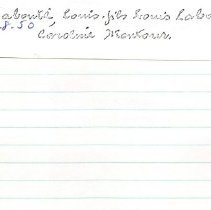 abouté Louis, fils Louis Labo
8.50
Caroline Montour.